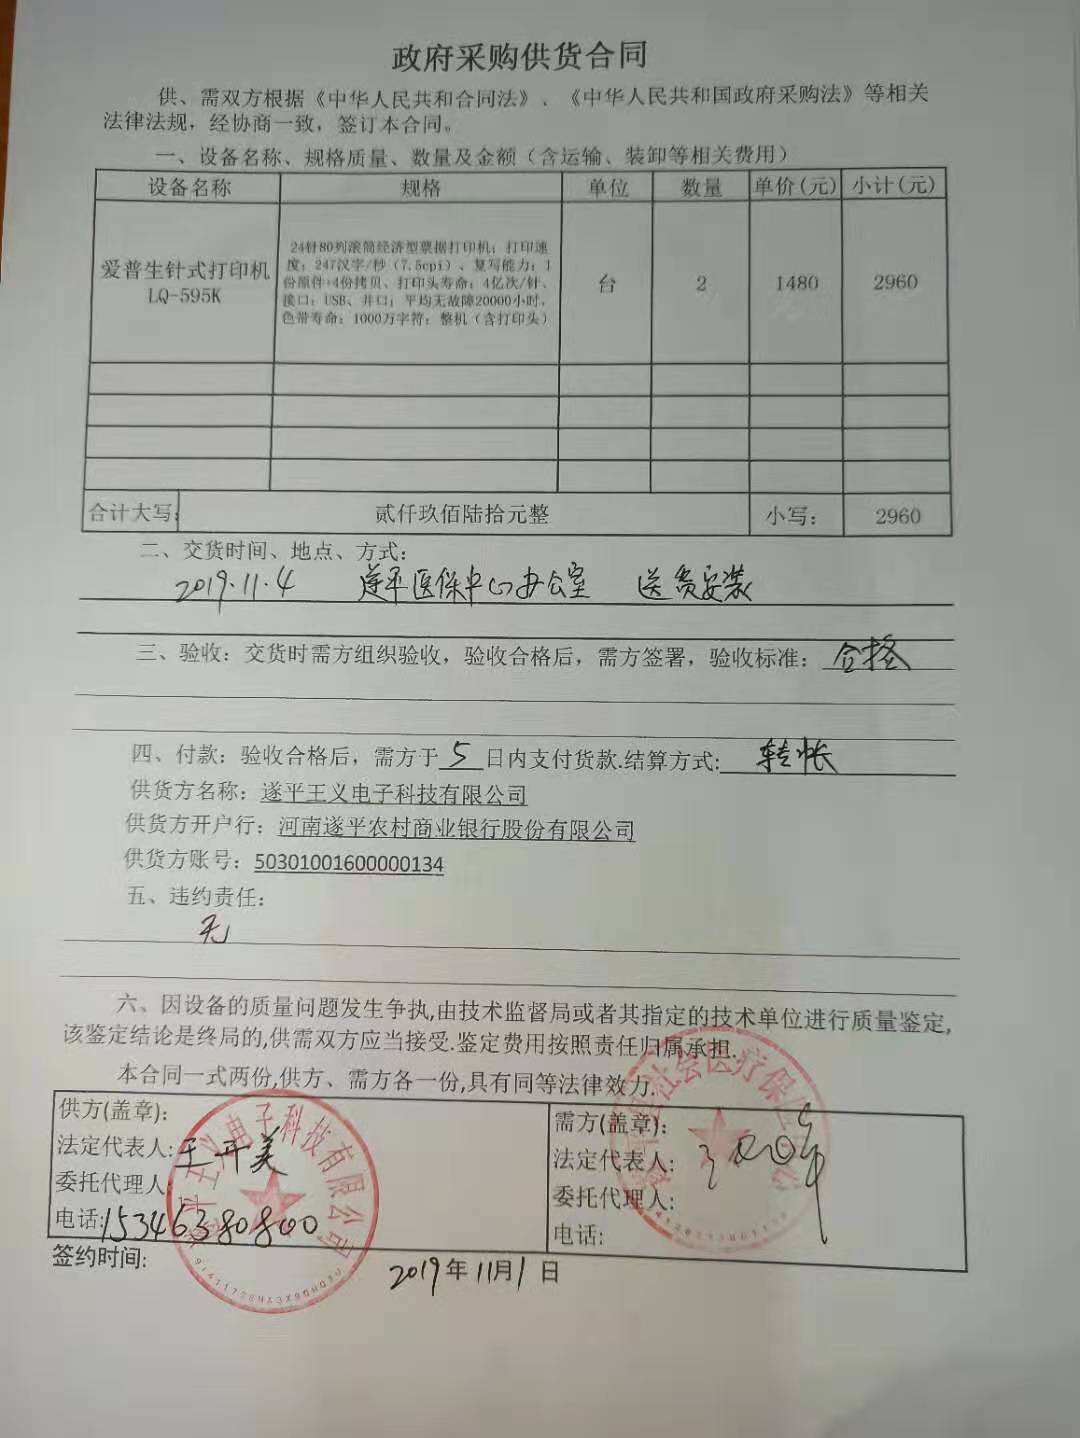 政府采购供货合同
供、需双方根据《中华人民共和合同法》、《中华人民共和国政府采购法》等相关
法律法规，经协商一致，签订本合同。
一、设备名称、规格质量、数量及金额（含运输、装卸等相关费用）
设备名称 规格 单位 数量 单价(元) 小计(元)
24针80列滚筒经济型票据打印机；打印速
度：247汉字/秒（7.5cpi）、复写能力：1
份原件+4份拷贝、打印头寿命：4亿次/针、
接口：USB、并口；平均无故障20000小时，
色带寿命：1000万字符；整机（含打印头）
爱普生针式打印机
LQ-595K
台 2 1480 2960
合计大写： 贰仟玖佰陆拾元整 小写： 2960
二、交货时间、地点、方式：
2019.11.4 遂平医保中心办公室 送货安装
三、验收：交货时需方组织验收，验收合格后，需方签署，验收标准：合格
四、付款：验收合格后，需方于5日内支付货款.结算方式:转帐
供货方名称：遂平王义电子科技有限公司
供货方开户行：河南遂平农村商业银行股份有限公司
供货方账号：50301001600000134
五、违约责任：
无
六、因设备的质量问题发生争执,由技术监督局或者其指定的技术单位进行质量鉴定,
该鉴定结论是终局的,供需双方应当接受.鉴定费用按照责任归属承担.
本合同一式两份,供方、需方各一份,具有同等法律效力.
供方(盖章)：
法定代表人:王开美
委托代理人:
电话:15346380800
需方(盖章)：
法定代表人:
委托代理人:
电话:
签约时间: 2019年11月1日
遂平王义电子科技有限公司
社会医疗保